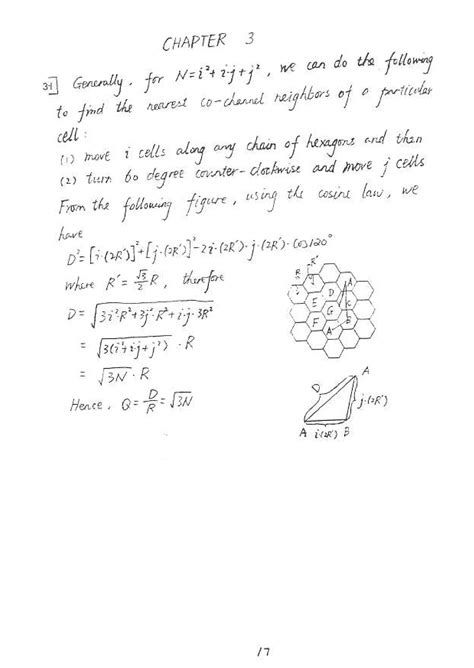 CHAPTER 3
3.1] Generally, for N=i²+i·j+j², we can do the following
to find the nearest co-channel neighbors of a particular
cell:
(1) move i cells along any chain of hexagons and then
(2) turn 60 degree counter-clockwise and move j cells
From the following figure, using the cosine law, we
have
D²=[i·(2R')]²+[j·(2R')]²-2i·(2R')·j·(2R')·cos120°
where R'=√3/2 R, therefore
D=√(3i²R²+3j²R²+i·j·3R²)
=√(3(i²+i·j+j²))·R
=√3N·R
Hence, Q=D/R=√3N
R R'
A
D
E
G C
F B
A
A
D
j·(2R')
A i·(2R') B
17